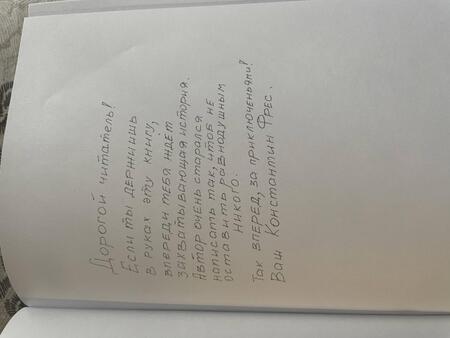 Дорогой читатель!
Если ты держишь
в руках эту книгу,
впереди тебя ждёт
захватывающая история.
Автор очень старался
написать так, чтоб не
оставить равнодушным
никого.
Так вперёд, за приключеньями!
Ваш Константин Фрес.